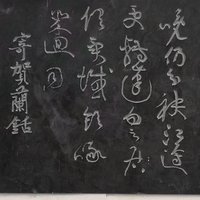 晚仍分袂江邊
更轉蓬勿云
俱異域飲啄
幾迴同
寄賀蘭銛